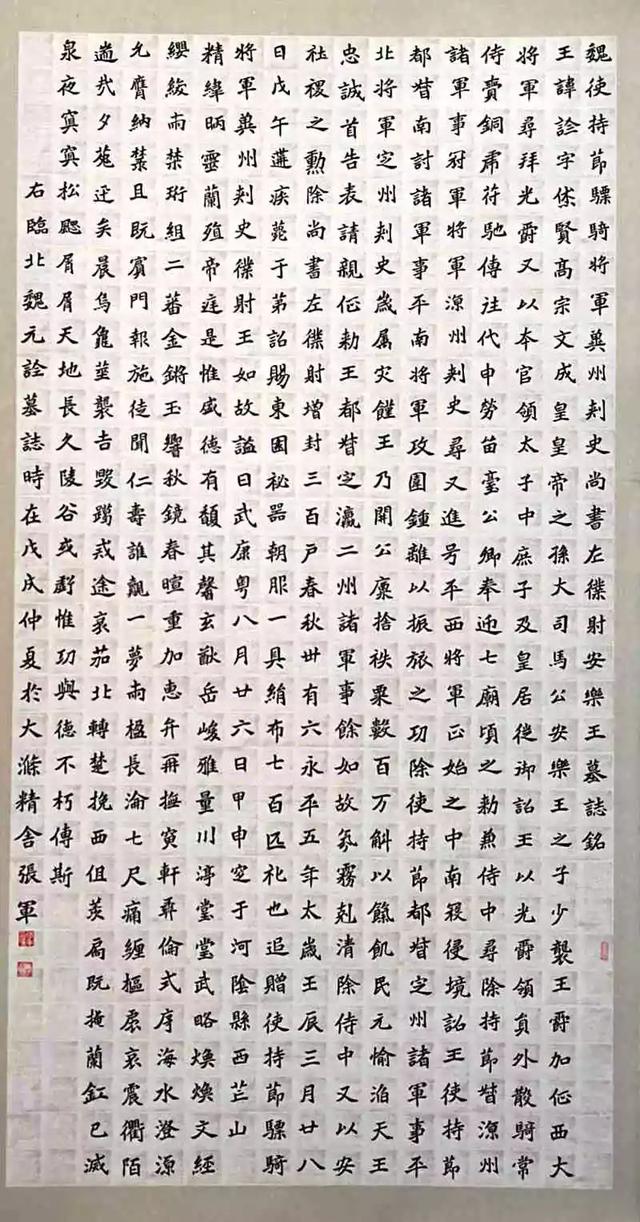 魏使持節驃騎將軍冀州刾史尚書左僕射安樂王墓誌銘
王諱詮字休賢高宗文成皇皇帝之孫大司馬公安樂王之子少襲王爵加征西大
將軍尋拜光爵又以本官領太子中庶子及皇居徙御詔王以光爵領員外散騎常
侍賷銅虎苻馳傳注代申勞笛臺公卿奉迎七廟頃之勑兼侍中尋除持節督涼州
諸軍事冠軍將軍涼州刾史尋又進号平西將軍正始之中南冦侵境詔王使持節
都督南討諸軍事平南將軍攻圍鍾離以振旅之功除使持節都督定州諸軍事平
北將軍定州刾史歲属灾饉王乃開公廩捨袟粟數百万斛以餼飢民元愉滔天王
忠誠首告表請親征勑王都督定瀛二州諸軍事餘如故氛霧剋清除侍中又以安
社稷之勳除尚書左僕射增封三百户春秋卅有六永平五年太歲壬辰三月廿八
日戊午遘疾薨于第詔賜東園祕器朝服一具絹布七百匹礼也追贈使持節驃騎
將軍冀州刾史僕射王如故謚曰武康粤八月廿六日甲申窆于河陰縣西芒山
精緯昞靈蘭殖帝庭是惟盛德有馥其馨玄猷岳峻雅量川渟堂堂武略煥煥文經
纓紱兩禁珩組二蕃金鏘玉響秋鏡春暄重加惠弁再撫寅軒彝倫式序海水澄源
允膺納禁且既賓門報施徒聞仁壽誰覿一夢兩楹長淪七尺痛纏樞扆哀震衢陌
遒哉夕菟迅矣晨烏龜筮襲吉毀躅戒途哀茄北轉楚挽西徂羨扃既掩蘭釭已滅
泉夜冥冥松颸屑屑天地長久陵谷或虧惟功與德不朽傳斯
右臨北魏元詮墓誌時在戊戌仲夏於大滌精舍張軍